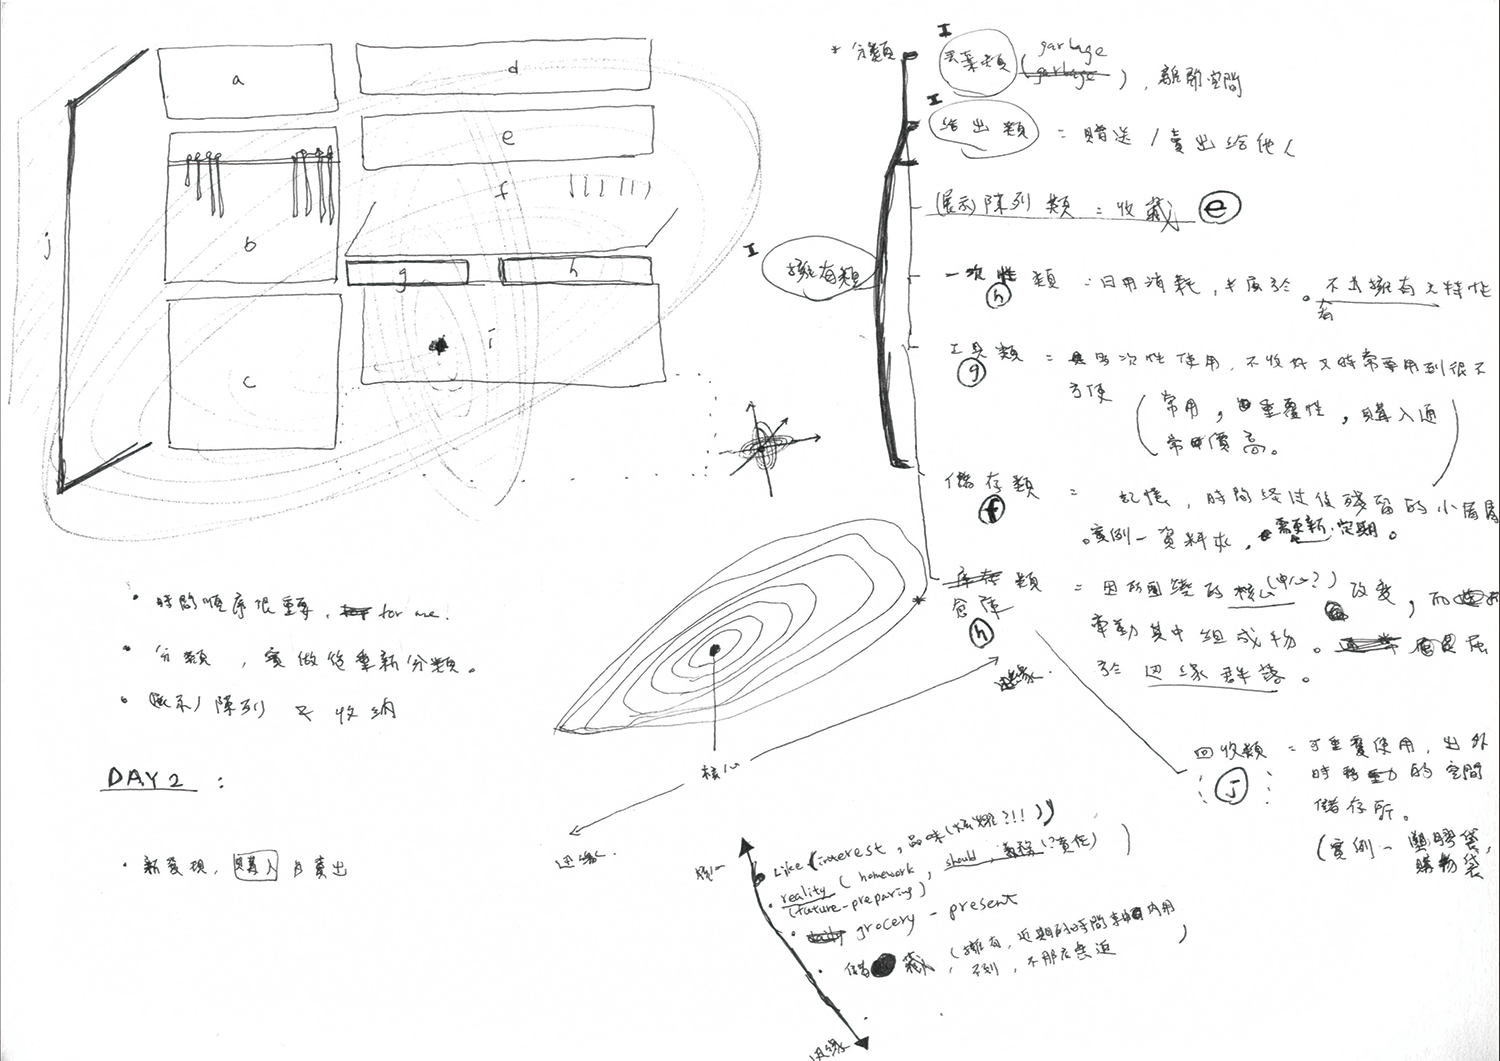 a
d
e
f
b
j
g
h
c
i
* 分類
I
丟棄類 (garbage
garbage), 離開空間
I
給出類 = 贈送 / 賣出給他人
(展示) 陳列類 = 收藏 e
I
擁有類
一次性類 = 日用消耗, 。不具擁有之特性
h
者
工具類 = 具多次性使用, 不收好又時常要用到很不
g
方便 (常用, 重覆性, 購入通
常單價高。)
儲存類 = 記憶, 時間經過後殘留的小屑屑
f
。實例—資料夾, 需更新.定期。
庫存類 = 因所圍繞的核心(中心?)改變, 而
倉庫
h
牽動其中組成物。屬
於邊緣群落。
回收類 = 可重覆使用, 出外
j
時移動的空間
儲存所。
(實例—塑膠袋,
購物袋
• 時間順序很重要, for me.
• 分類, 實做後重新分類。
• (展示) 陳列 及 收納
DAY 2 :
• 新發現, 購入 賣出
邊緣.
核心
邊緣.
核心
• Like (interest, 品味(炫耀?!!))
• reality (homework, should, 義務!?責任)
(future-preparing)
• daily grocery - present
• 儲藏 (擁有, 近期的時間內用
不到, 不那麼靠近)
邊緣